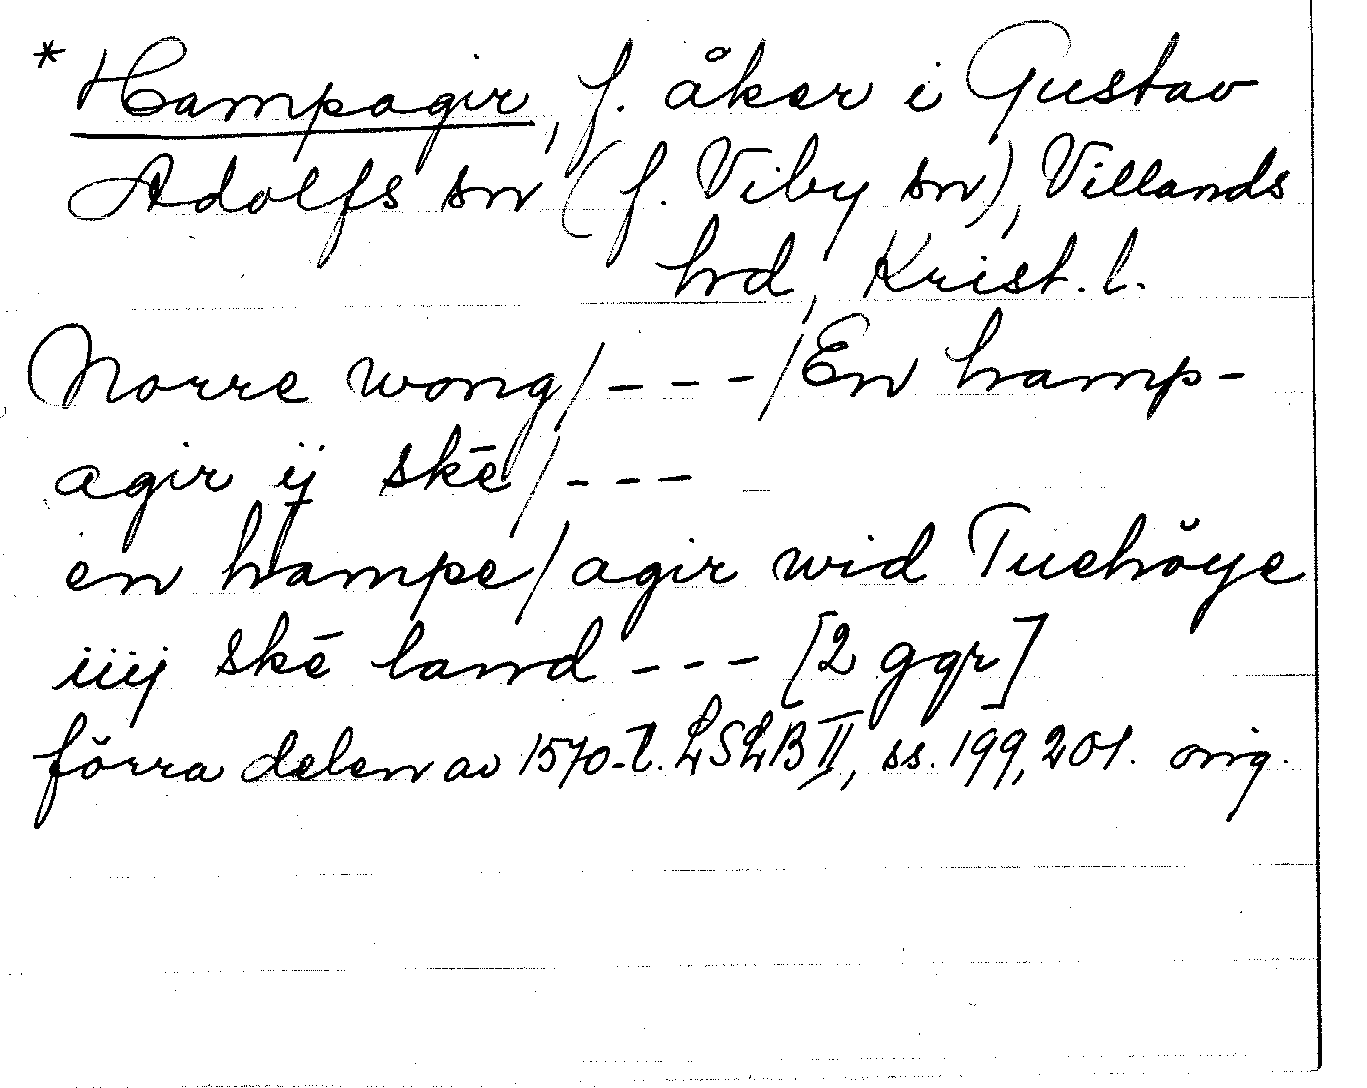 * Hampagir, f. åker i Gustav
Adolfs sn (f. Viby sn), Villands
hd, Krist. l.
Norre wong/---/En hamp-
agir ij skē/---
en hampe/agir wid Tuehöye
iiij skē land --- [2 ggr]
förra delen av 1570-t. LSLB II, ss. 199, 201. orig.